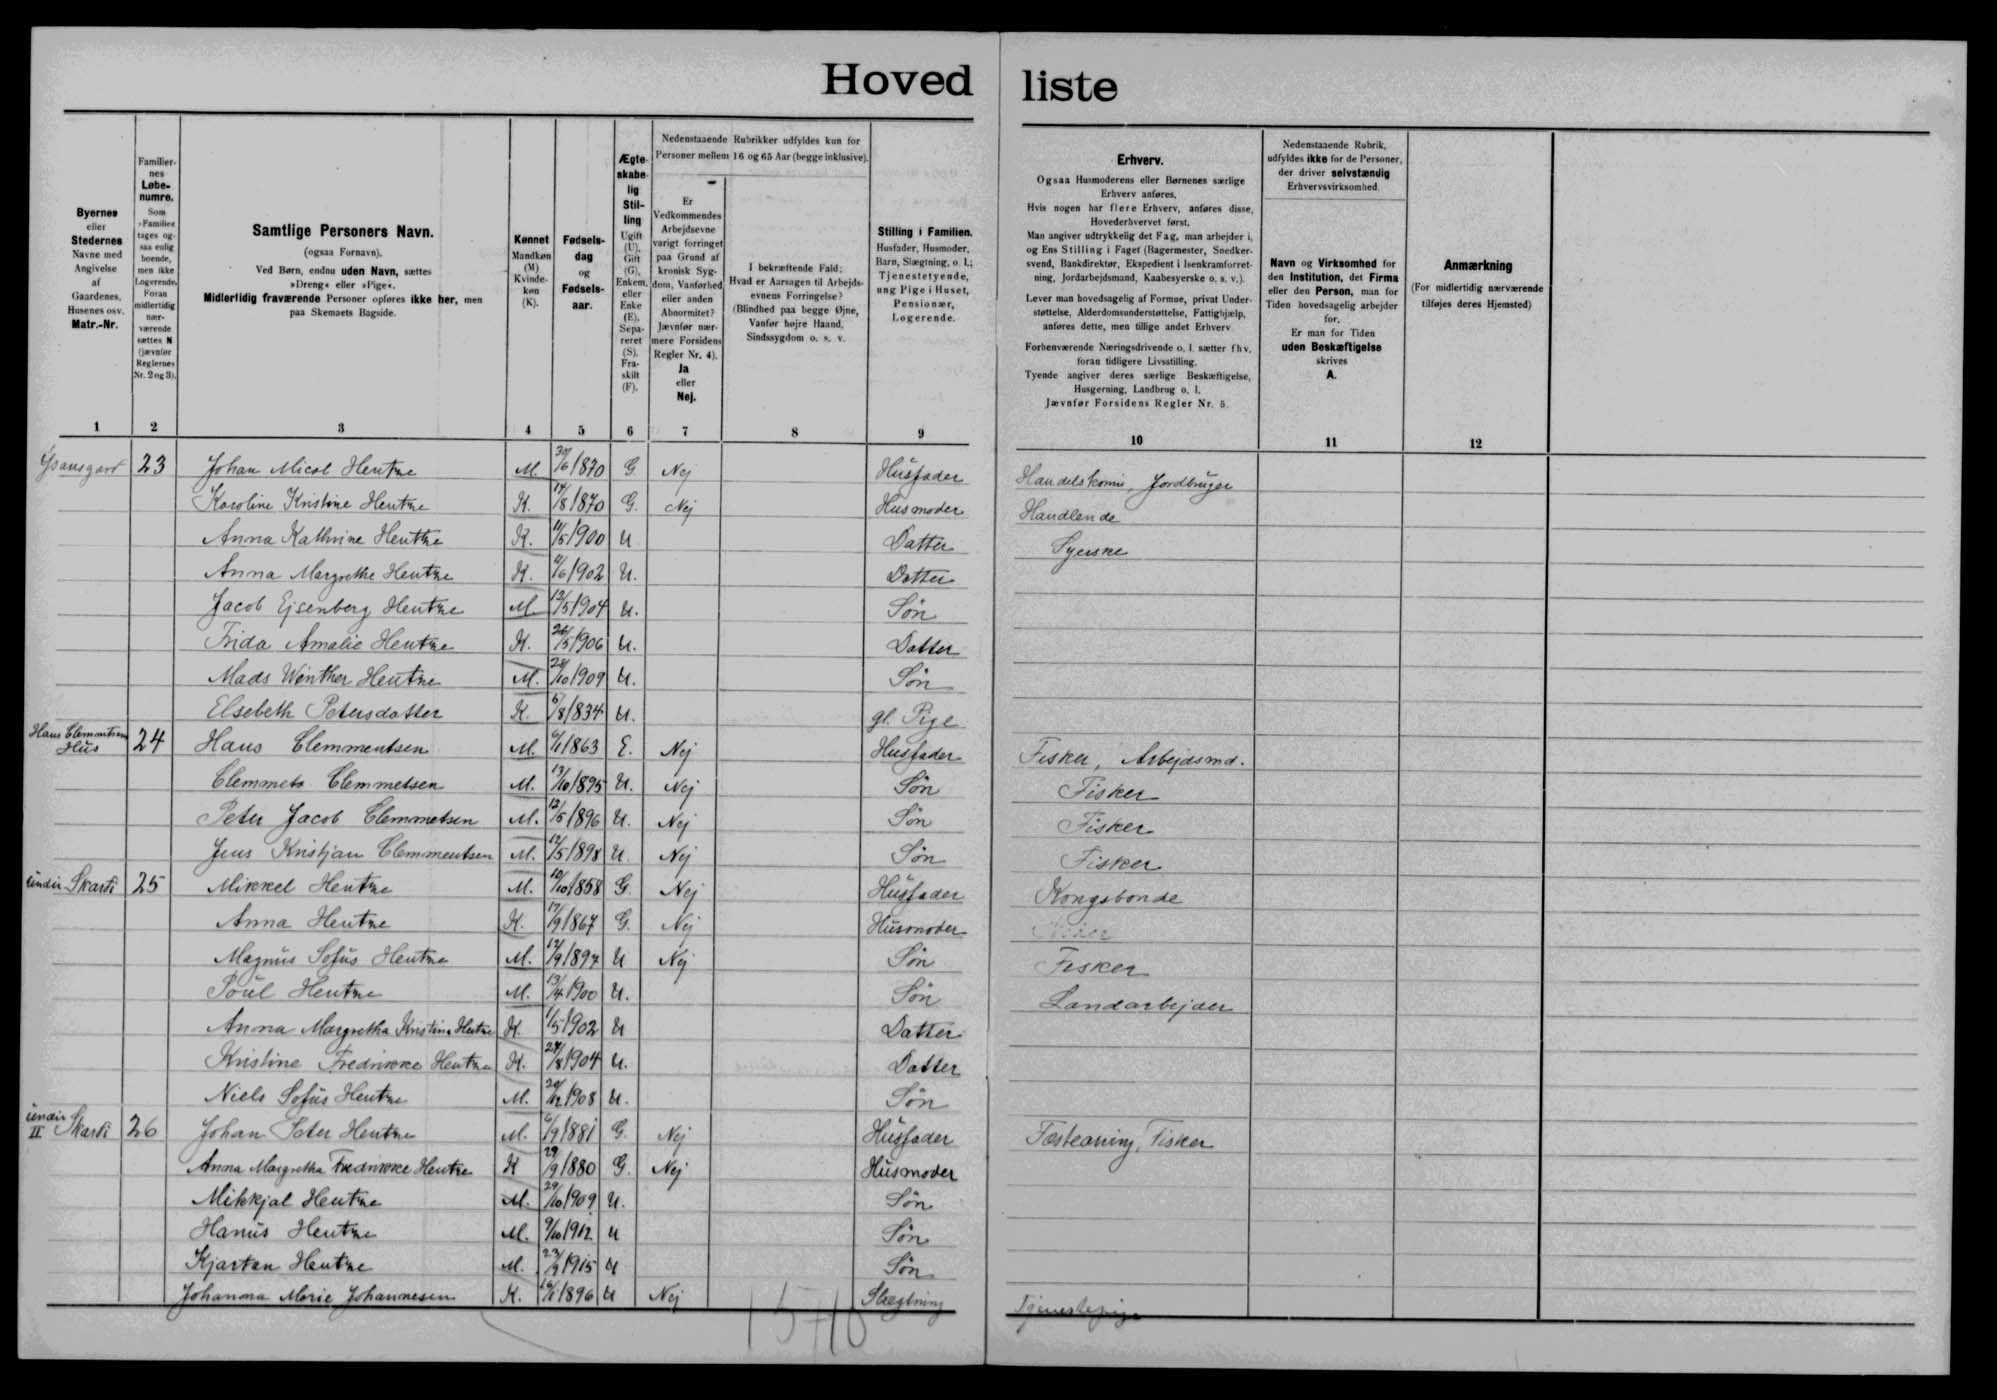 Hovedliste
Nedenstaaende Rubrikker udfyldes kun for
Personer mellem 16 og 65 Aar (begge inklusive).
Byernes
eller
Stedernes
Navne med
Angivelse
af
Gaardenes,
Husenes osv.
Matr.-Nr.
Familier-
nes
Løbe-
numre.
Som
»Familie«
tages og-
saa enlig
boende,
men ikke
Logerende.
Foran
midlertidig
nær-
værende
sættes N
(jævnfør
Reglernes
Nr. 2 og 3).
Samtlige Personers Navn.
(ogsaa Fornavn).
Ved Børn, endnu uden Navn, sættes
»Dreng« eller »Pige«.
Midlertidig fraværende Personer opføres ikke her, men
paa Skemaets Bagside.
Kønnet
Mandkøn
(M)
Kvinde-
køn
(K).
Fødsels-
dag
og
Fødsels-
aar.
Ægte-
skabe-
lig
Stil-
ling
Ugift
(U),
Gift
(G),
Enkem.
eller
Enke
(E),
Sepa-
reret
(S),
Fra-
skilt
(F).
Er
Vedkommendes
Arbejdsevne
varigt forringet
paa Grund af
kronisk Syg-
dom, Vanførhed
eller anden
Abnormitet?
Jævnfør nær-
mere Forsidens
Regler Nr. 4).
Ja
eller
Nej.
I bekræftende Fald:
Hvad er Aarsagen til Arbejds-
evnens Forringelse?
(Blindhed paa begge Øjne,
Vanfør højre Haand,
Sindssygdom o. s. v.
Stilling i Familien.
Husfader, Husmoder,
Barn, Slægtning, o. l.;
Tjenestetyende,
ung Pige i Huset,
Pensionær,
Logerende.
Erhverv.
Ogsaa Husmoderens eller Børnenes særlige
Erhverv anføres,
Hvis nogen har flere Erhverv, anføres disse,
Hovederhvervet først,
Man angiver udtrykkelig det Fag, man arbejder i,
og Ens Stilling i Faget (Bagermester, Snedker-
svend, Bankdirektør, Ekspedient i Isenkramforret-
ning, Jordarbejdsmand, Kaabesyerske o. s. v.).
Lever man hovedsagelig af Formue, privat Under-
støttelse, Alderdomsunderstøttelse, Fattighjælp,
anføres dette, men tillige andet Erhverv
Forhenværende Næringsdrivende o. l. sætter fhv.
foran tidligere Livsstilling.
Tyende angiver deres særlige Beskæftigelse,
Husgerning, Landbrug o. l.
Jævnfør Forsidens Regler Nr. 5.
Nedenstaaende Rubrik,
udfyldes ikke for de Personer,
der driver selvstændig
Erhvervsvirksomhed.
Navn og Virksomhed for
den Institution, det Firma
eller den Person, man for
Tiden hovedsagelig arbejder
for.
Er man for Tiden
uden Beskæftigelse
skrives
A.
Anmærkning
(For midlertidig nærværende
tilføjes deres Hjemsted)
1 2 3 4 5 6 7 8 9 10 11 12
23 Johan Micol Hentze M. 30/6 1870 G. Nej Husfader Handelskomis, Jordbruger
Karoline Kristine Hentze K. 14/8 1870 G. Nej Husmoder Handlende
Anna Kathrine Hentze K. 11/5 1900 U Datter Syerske
Anna Margrethe Hentze K. 1902 U. Datter
Jacob Ejsenberg Hentze M 12/5 1904 U. Søn
Frida Amalie Hentze K. 26/5 1906 U. Datter
Mads Winther Hentze M. 1909 U. Søn
Elsebeth Petersdatter K. 5/8 1834 U. gl. Pige
Hans Clemmentsens
Hus 24 Hans Clemmentsen M. 1863 E. Nej Husfader Fisker, Arbejdsmd.
Clemmets Clemmetsen M. 13/10 1895 U. Nej Søn Fisker
Peter Jacob Clemmetsen M. 12/5 1896 U. Nej Søn Fisker
Jens Kristjan Clemmentsen M. 12/5 1898 U. Nej Søn Fisker
undir Skardi 25 Mikkel Hentze M. 10/10 1858 G. Nej Husfader Kongsbonde
Anna Hentze K. 17/9 1867 G. Nej Husmoder
Magnus Sofus Hentze M. 12/9 1897 U Nej Søn Fisker
Poul Hentze M. 13/4 1900 U. Søn Landarbejder
Anna Margretha Kristina Hentze K. 1/5 1902 U Datter
Kristine Fredrikke Hentze K. 1904 U. Datter
Niels Sofus Hentze M. 1908 U. Søn
undir
II Skardi 26 Johan Peter Hentze M. 6/9 1881 G. Nej Husfader Fisker
Anna Margretha Fredrikke Hentze K 29/9 1880 G. Nej Husmoder
Mikkjal Hentze M. 29/10 1909 U. Søn
Hanus Hentze M. 9/10 1912 U Søn
Kjartan Hentze M. 1915 U Søn
Johanna Marie Johannesen K. 1896 U Nej Slægtning Tjenestepige